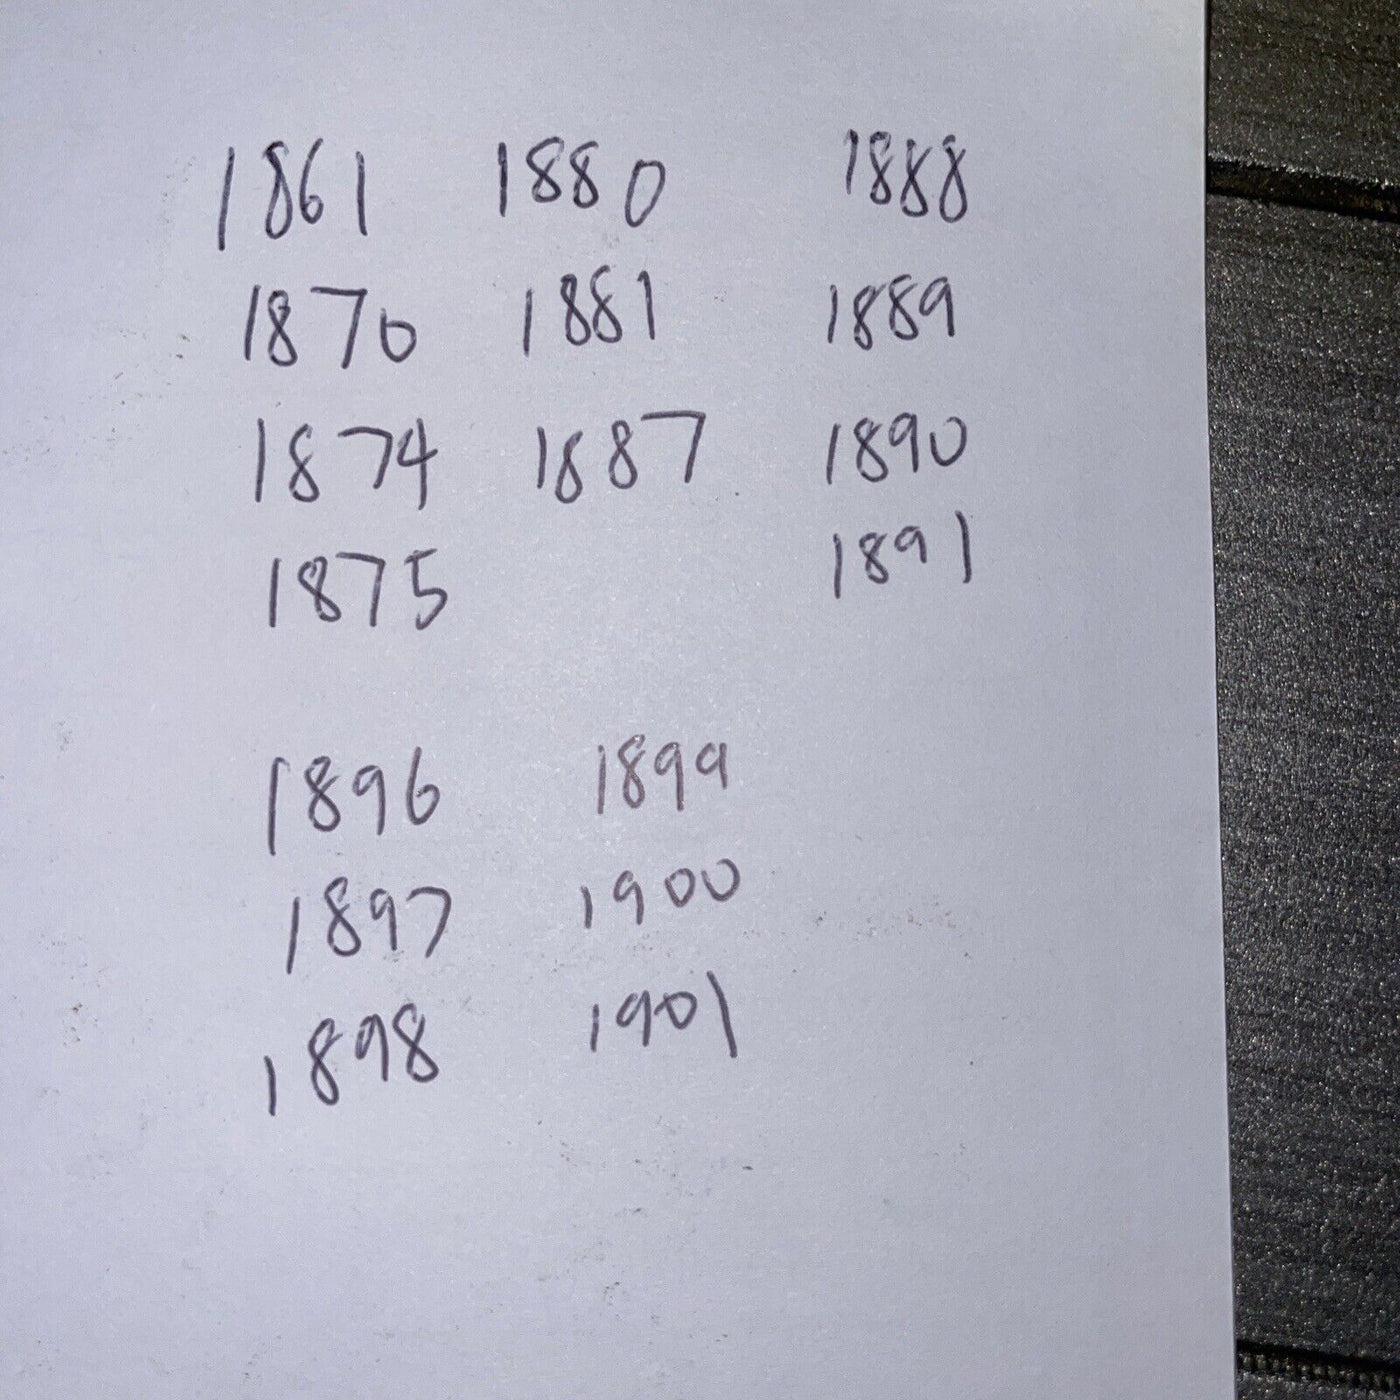 1861 1880 1888
1870 1881 1889
1874 1887 1890
1875 1891
1896 1899
1897 1900
1898 1901